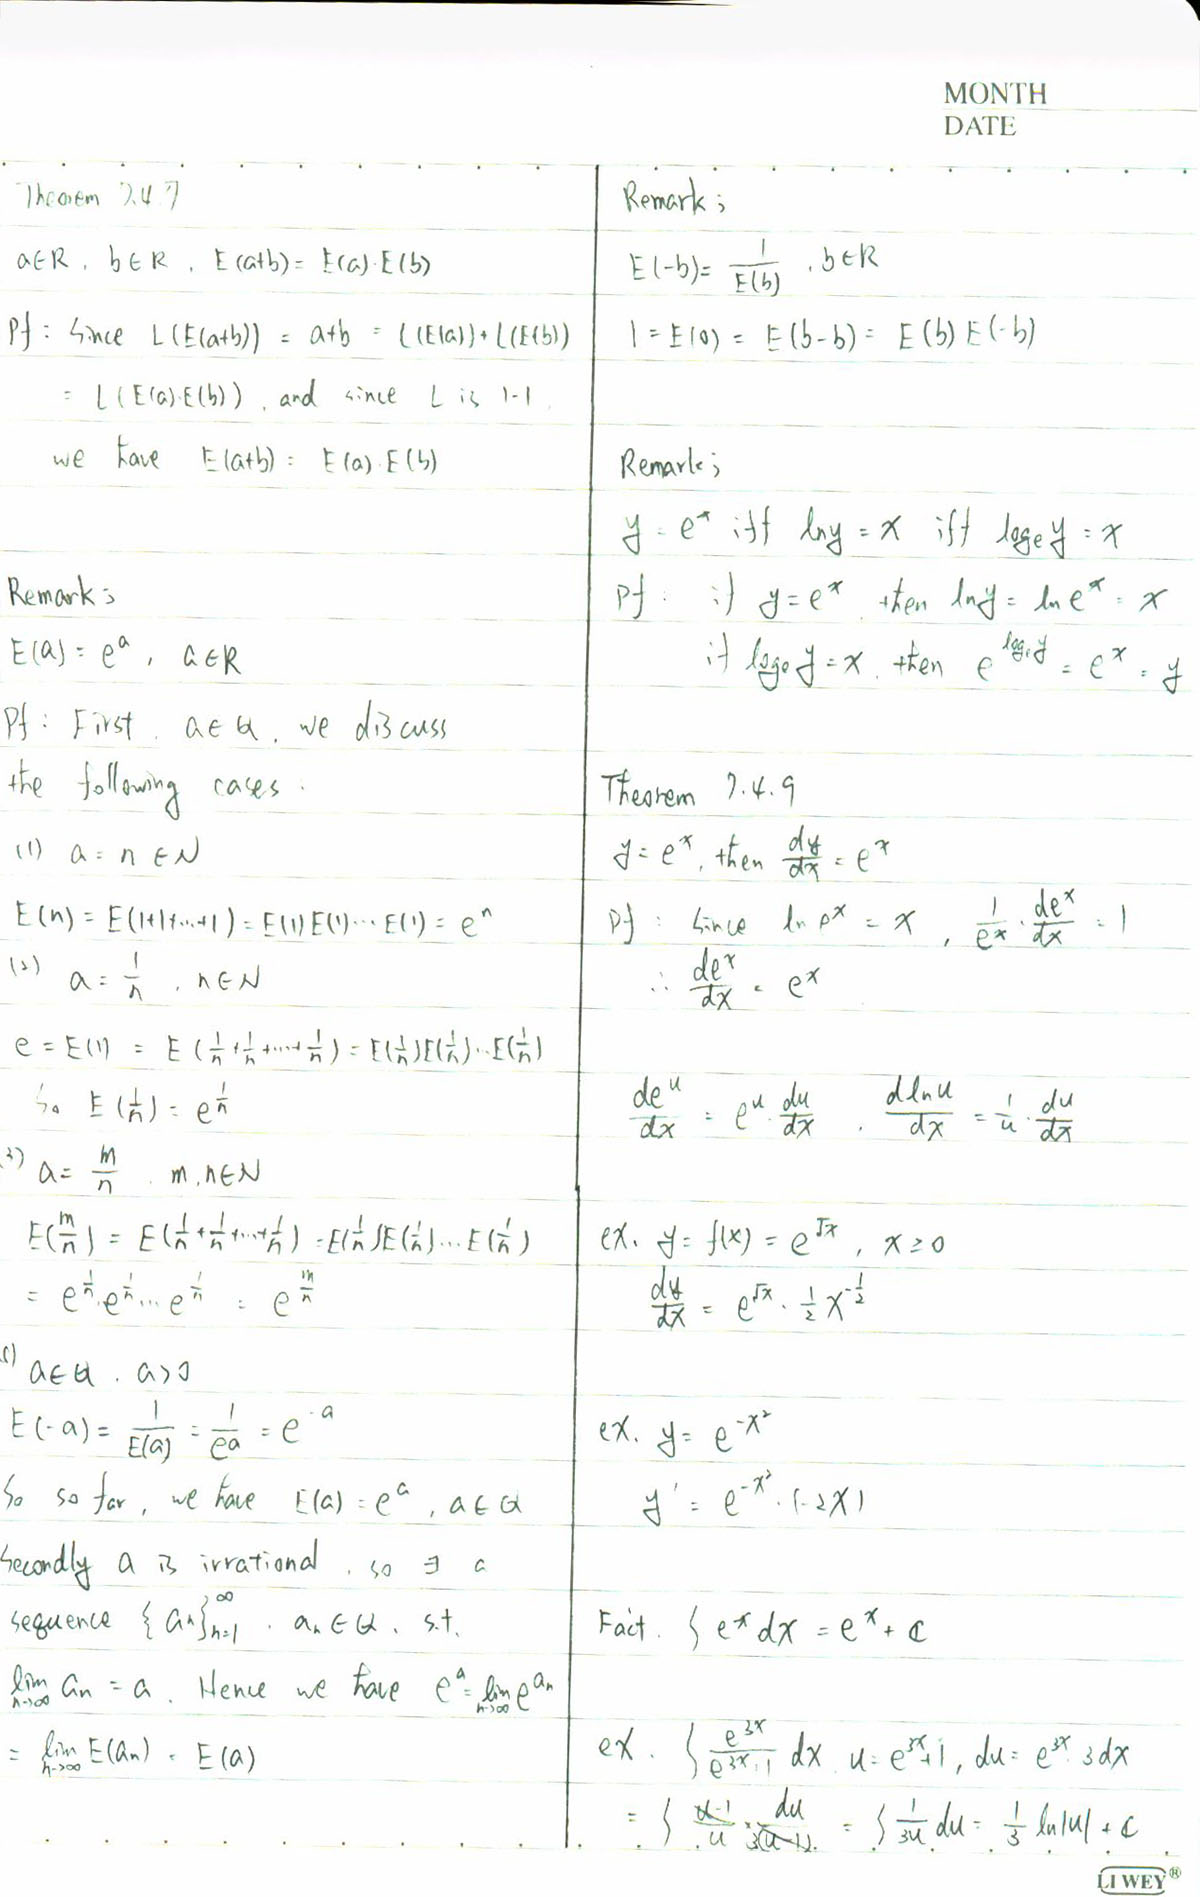 MONTH
DATE
Theorem 7.4.7
a∈R, b∈R, E(a+b) = E(a)·E(b)
Pf: Since L(E(a+b)) = a+b = L(E(a)) + L(E(b))
= L(E(a)·E(b)), and since L is 1-1,
we have E(a+b) = E(a)·E(b)
Remark;
E(a) = e^a, a∈R
Pf: First, a∈Q, we discuss
the following cases:
(1) a = n ∈ N
E(n) = E(1+1+...+1) = E(1)E(1)...E(1) = e^n
(2) a = 1/n, n∈N
e = E(1) = E(1/n + 1/n + ... + 1/n) = E(1/n)E(1/n)...E(1/n)
So E(1/n) = e^(1/n)
3) a = m/n, m, n∈N
E(m/n) = E(1/n + 1/n + ... + 1/n) = E(1/n)E(1/n)...E(1/n)
= e^(1/n)·e^(1/n)...e^(1/n) = e^(m/n)
a∈Q, a>0
E(-a) = 1/E(a) = 1/e^a = e^(-a)
So so far, we have E(a) = e^a, a∈Q
Secondly a is irrational, so ∃ a
sequence {a_n}_{n=1}^∞, a_n∈Q, s.t.
lim_{n→∞} a_n = a. Hence we have e^a = lim_{n→∞} e^(a_n)
= lim_{n→∞} E(a_n) = E(a)
Remark;
E(-b) = 1/E(b), b∈R
1 = E(0) = E(b-b) = E(b)E(-b)
Remark;
y = e^x iff ln y = x iff log_e y = x
Pf: if y = e^x, then ln y = ln e^x = x
if log_e y = x, then e^(log_e y) = e^x = y
Theorem 7.4.9
y = e^x, then dy/dx = e^x
Pf: Since ln e^x = x, 1/e^x · de^x/dx = 1
∴ de^x/dx = e^x
de^u/dx = e^u · du/dx, d ln u/dx = 1/u · du/dx
ex. y = f(x) = e^√x, x ≥ 0
dy/dx = e^√x · 1/2 x^(-1/2)
ex. y = e^(-x²)
y' = e^(-x²)·(-2x)
Fact. ∫ e^x dx = e^x + C
ex. ∫ e^(3x)/(e^(3x)+1) dx u = e^(3x)+1, du = e^(3x)·3dx
= ∫ (u-1)/u · du/3(u-1) = ∫ 1/3u du = 1/3 ln|u| + C
LIWEY®